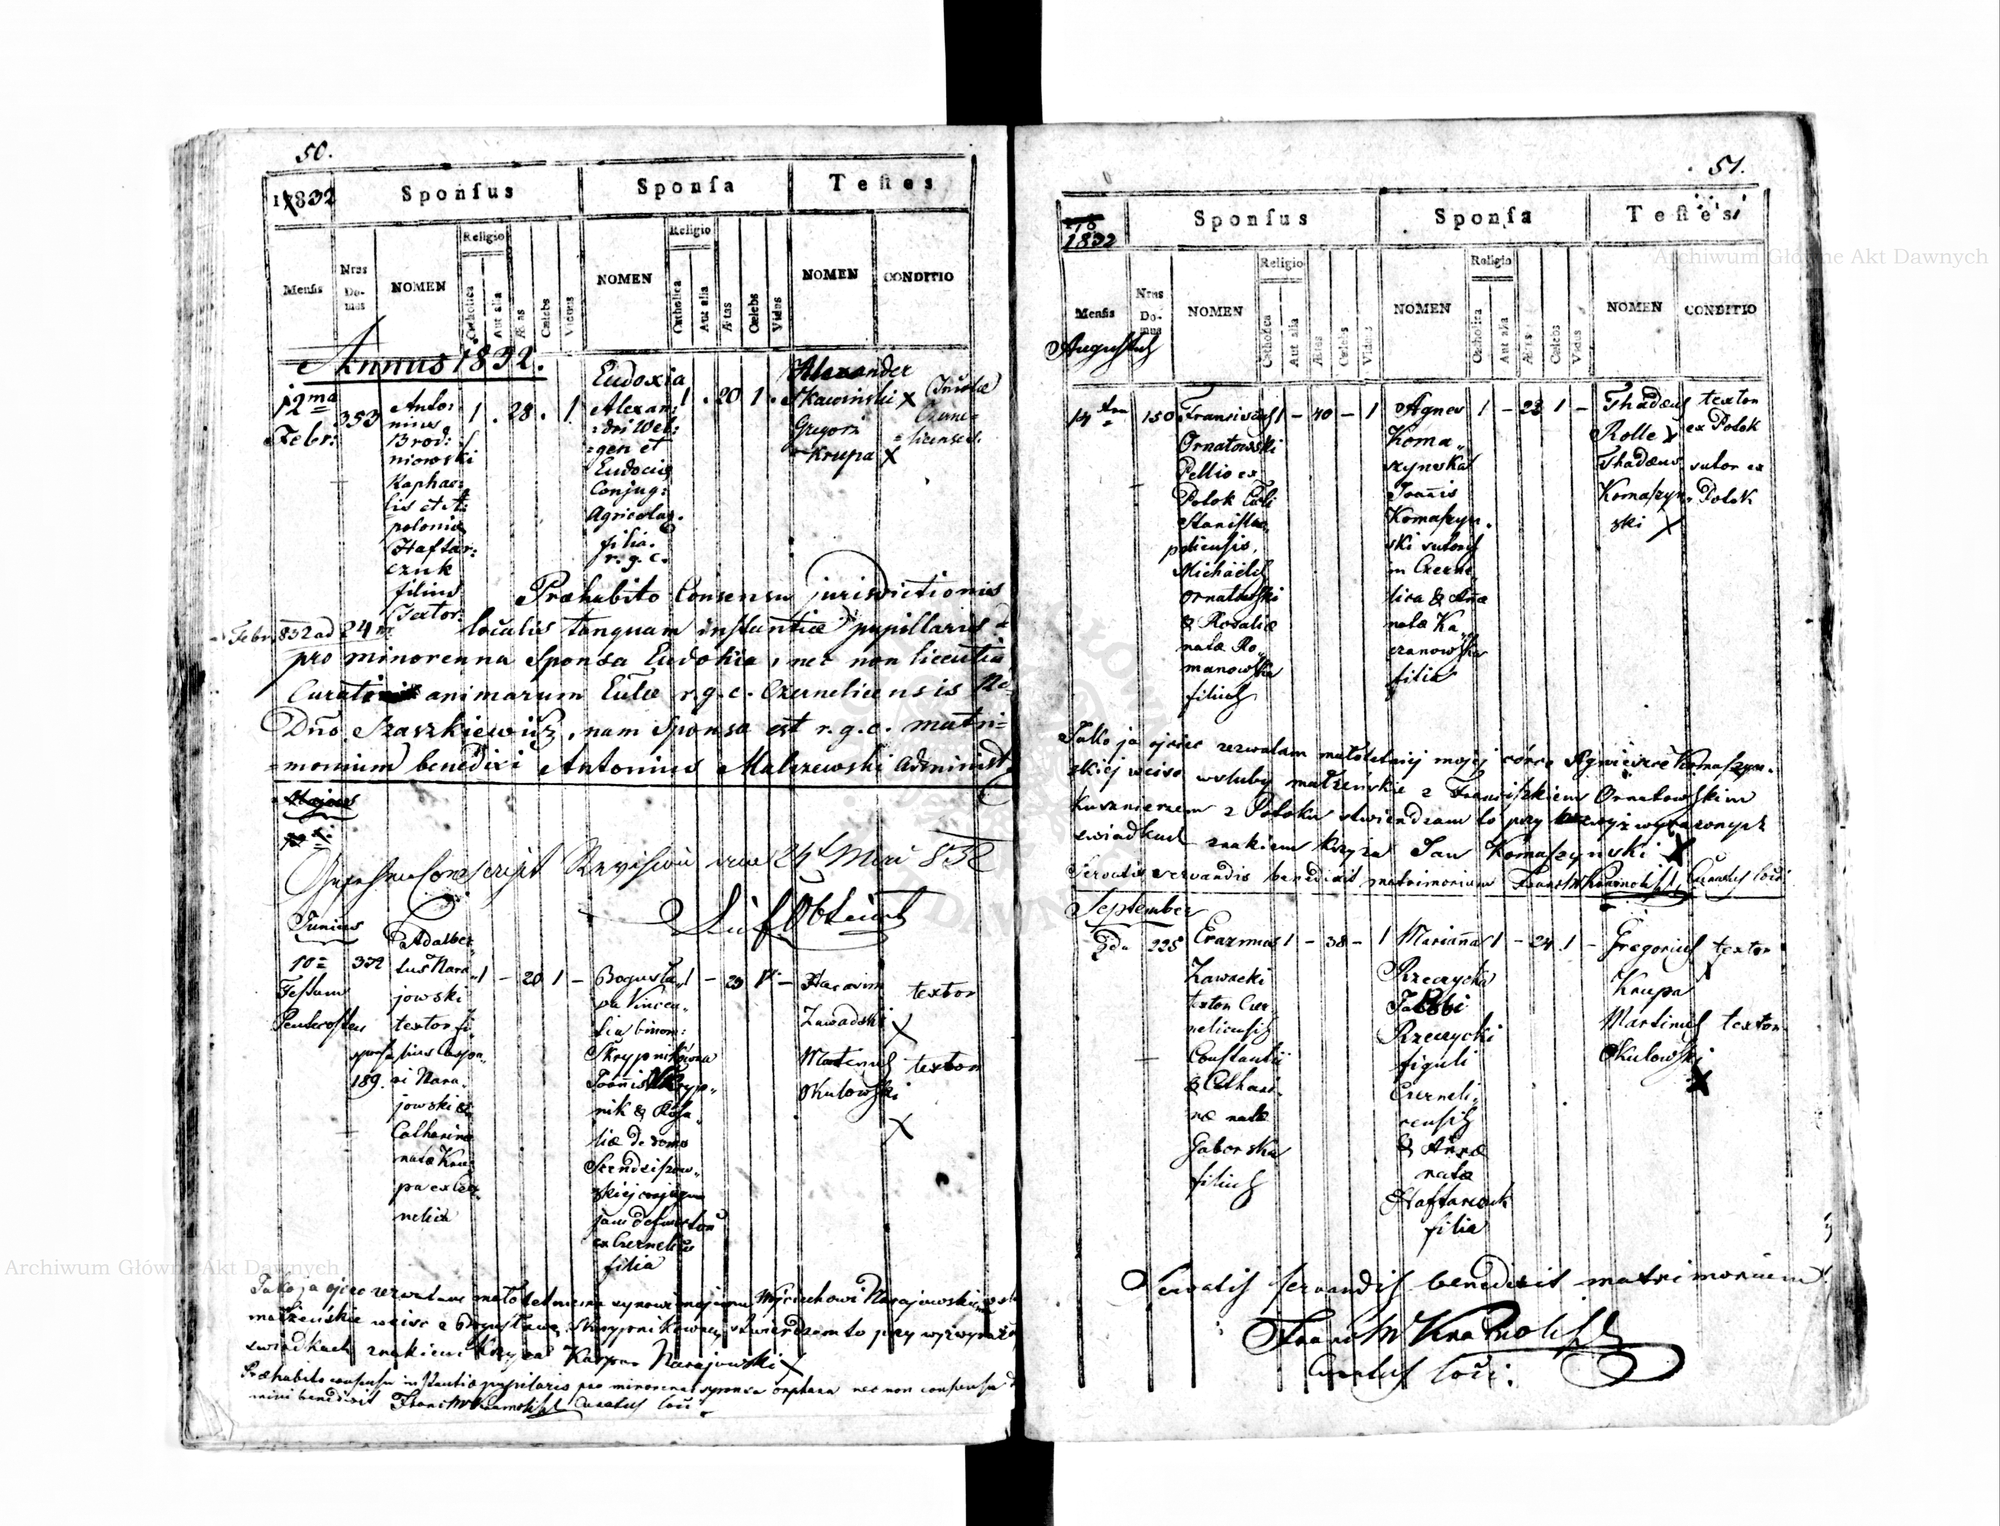 50.
1832
Sponſus
Sponſa
Teſtes
Menſis
Nrus Domus
NOMEN
Religio
Catholica
Aut alia
Ætas
Cœlebs
Viduus
NOMEN
Religio
Catholica
Aut alia
Ætas
Cœlebs
Vidua
NOMEN
CONDITIO
Annus 1832.
12ma
Febr:
353
Anto:
nius
Brod:
niowski
Rapha:
lis et A:
polonia
Haftar:
czuk
filius
Textor:
1 . 28 . 1
Eudoxia
Alexan:
dri Wet:
gen et
Eudocia
Conjug:
Agricolar.
filia.
r. g. c.
1 . 20 1 .
Alexander
Skawinski x
Gregori
Krupa x
Incolæ
Czerne=
licenses.
Præhabito Consensu jurisdictionis
Febr 832 ad 24
localis tanquam instantiæ pupillaris
pro minorenna Sponsa Eudokia, nec non licentia
Curatoris animarum Eccłæ r. g. c. Czernelicensis
Dno. Szaszkiewicz, nam Sponsa est r. g. c. matri=
=monium benedixi Antonius Malczewski Administ
Majus
Conscript Revision 24 Mai 832
Junius
10
Festum
Pentecostes
332
sponsa
189.
Adalber
tus Nara
jowski
textor fi
lius Caspa
ri Nara
jowski &
Catharina
nata Kru
pa ex Czer
nelica
1 - 20 1 -
Bogusła
va Vincen
tia binom:
Skrypnikowna
Joannis Skryp
nik & Rosa
liæ de domo
Sendziszow
skiej conjugum
jam defunctorum
ex Czernelica
filia
1 - 23 1 -
Zawadski
x
Martinus
Okulowski
x
textor
textor
Jako ja ojciec zezwalam małoletniemu synowi mojemu Wojciechowi Narajowskiemu
małżeńskie wejsc z Bogusławą Skrypnikowną, stwierdzam to przy wyzwyraż
swiadkach znakiem Krzyża Kasper Narajowski x
Præhabito consensu instantiæ pupilaris pro minorena sponsa orphana nec non consensu
mini benedixit Curatus loci
51.
1832
Sponſus
Sponſa
Teſtes
Menſis
Nrus Domus
NOMEN
Religio
Catholica
Aut alia
Ætas
Cœlebs
Viduus
NOMEN
Religio
Catholica
Aut alia
Ætas
Cœlebs
Vidua
NOMEN
CONDITIO
Augustus
14
150
Franciscus
Ornatowski
Pellio ex
Potok Coli
Stanislao
poliensis,
Michaelis
Ornatowski
& Rosaliæ
natæ Ro
manowska
filius
1 - 40 - 1
Agnes
Koma
szynska
Joannis
Komaszyn
ski sutoris
in Czerne
lica & Añæ
natæ Ka
czanowska
filia
1 - 23 1 -
Thadæus
Rolle x
Thadæus
Komaszyn
ski x
textor
ex Potok
sutor ex
Potok
Jako ja ojciec zezwalam małoletniej mojej córce Agnieszce Komaszyn
skiej wejsc w sluby małżeńskie z Franciszkiem Ornatowskim
Kusznierzem z Potoka stwierdzam to przy wyż wyrazonych
swiadkach znakiem krzyża Jan Komaszynski x
Servatis servandis benedixit matrimonium Curatus loci
September
2da
225
Erazmus
Zawacki
textor Czer
nelicensis
Constantii
& Cathari
næ natæ
Gaborska
filius
1 - 38 - 1
Marianna
Rzeczycka
Jacobi
Rzeczycki
figuli
Czerneli
censis
& Annæ
natæ
Haftarczuk
filia
1 - 24 1 -
Gregorius
Krupa
Martinus
Okulowski
x
textor
x
textor
Servatis servandis benedixit matrimonium
Curatus loci.
Archiwum Główne Akt Dawnych
Archiwum Główne Akt Dawnych